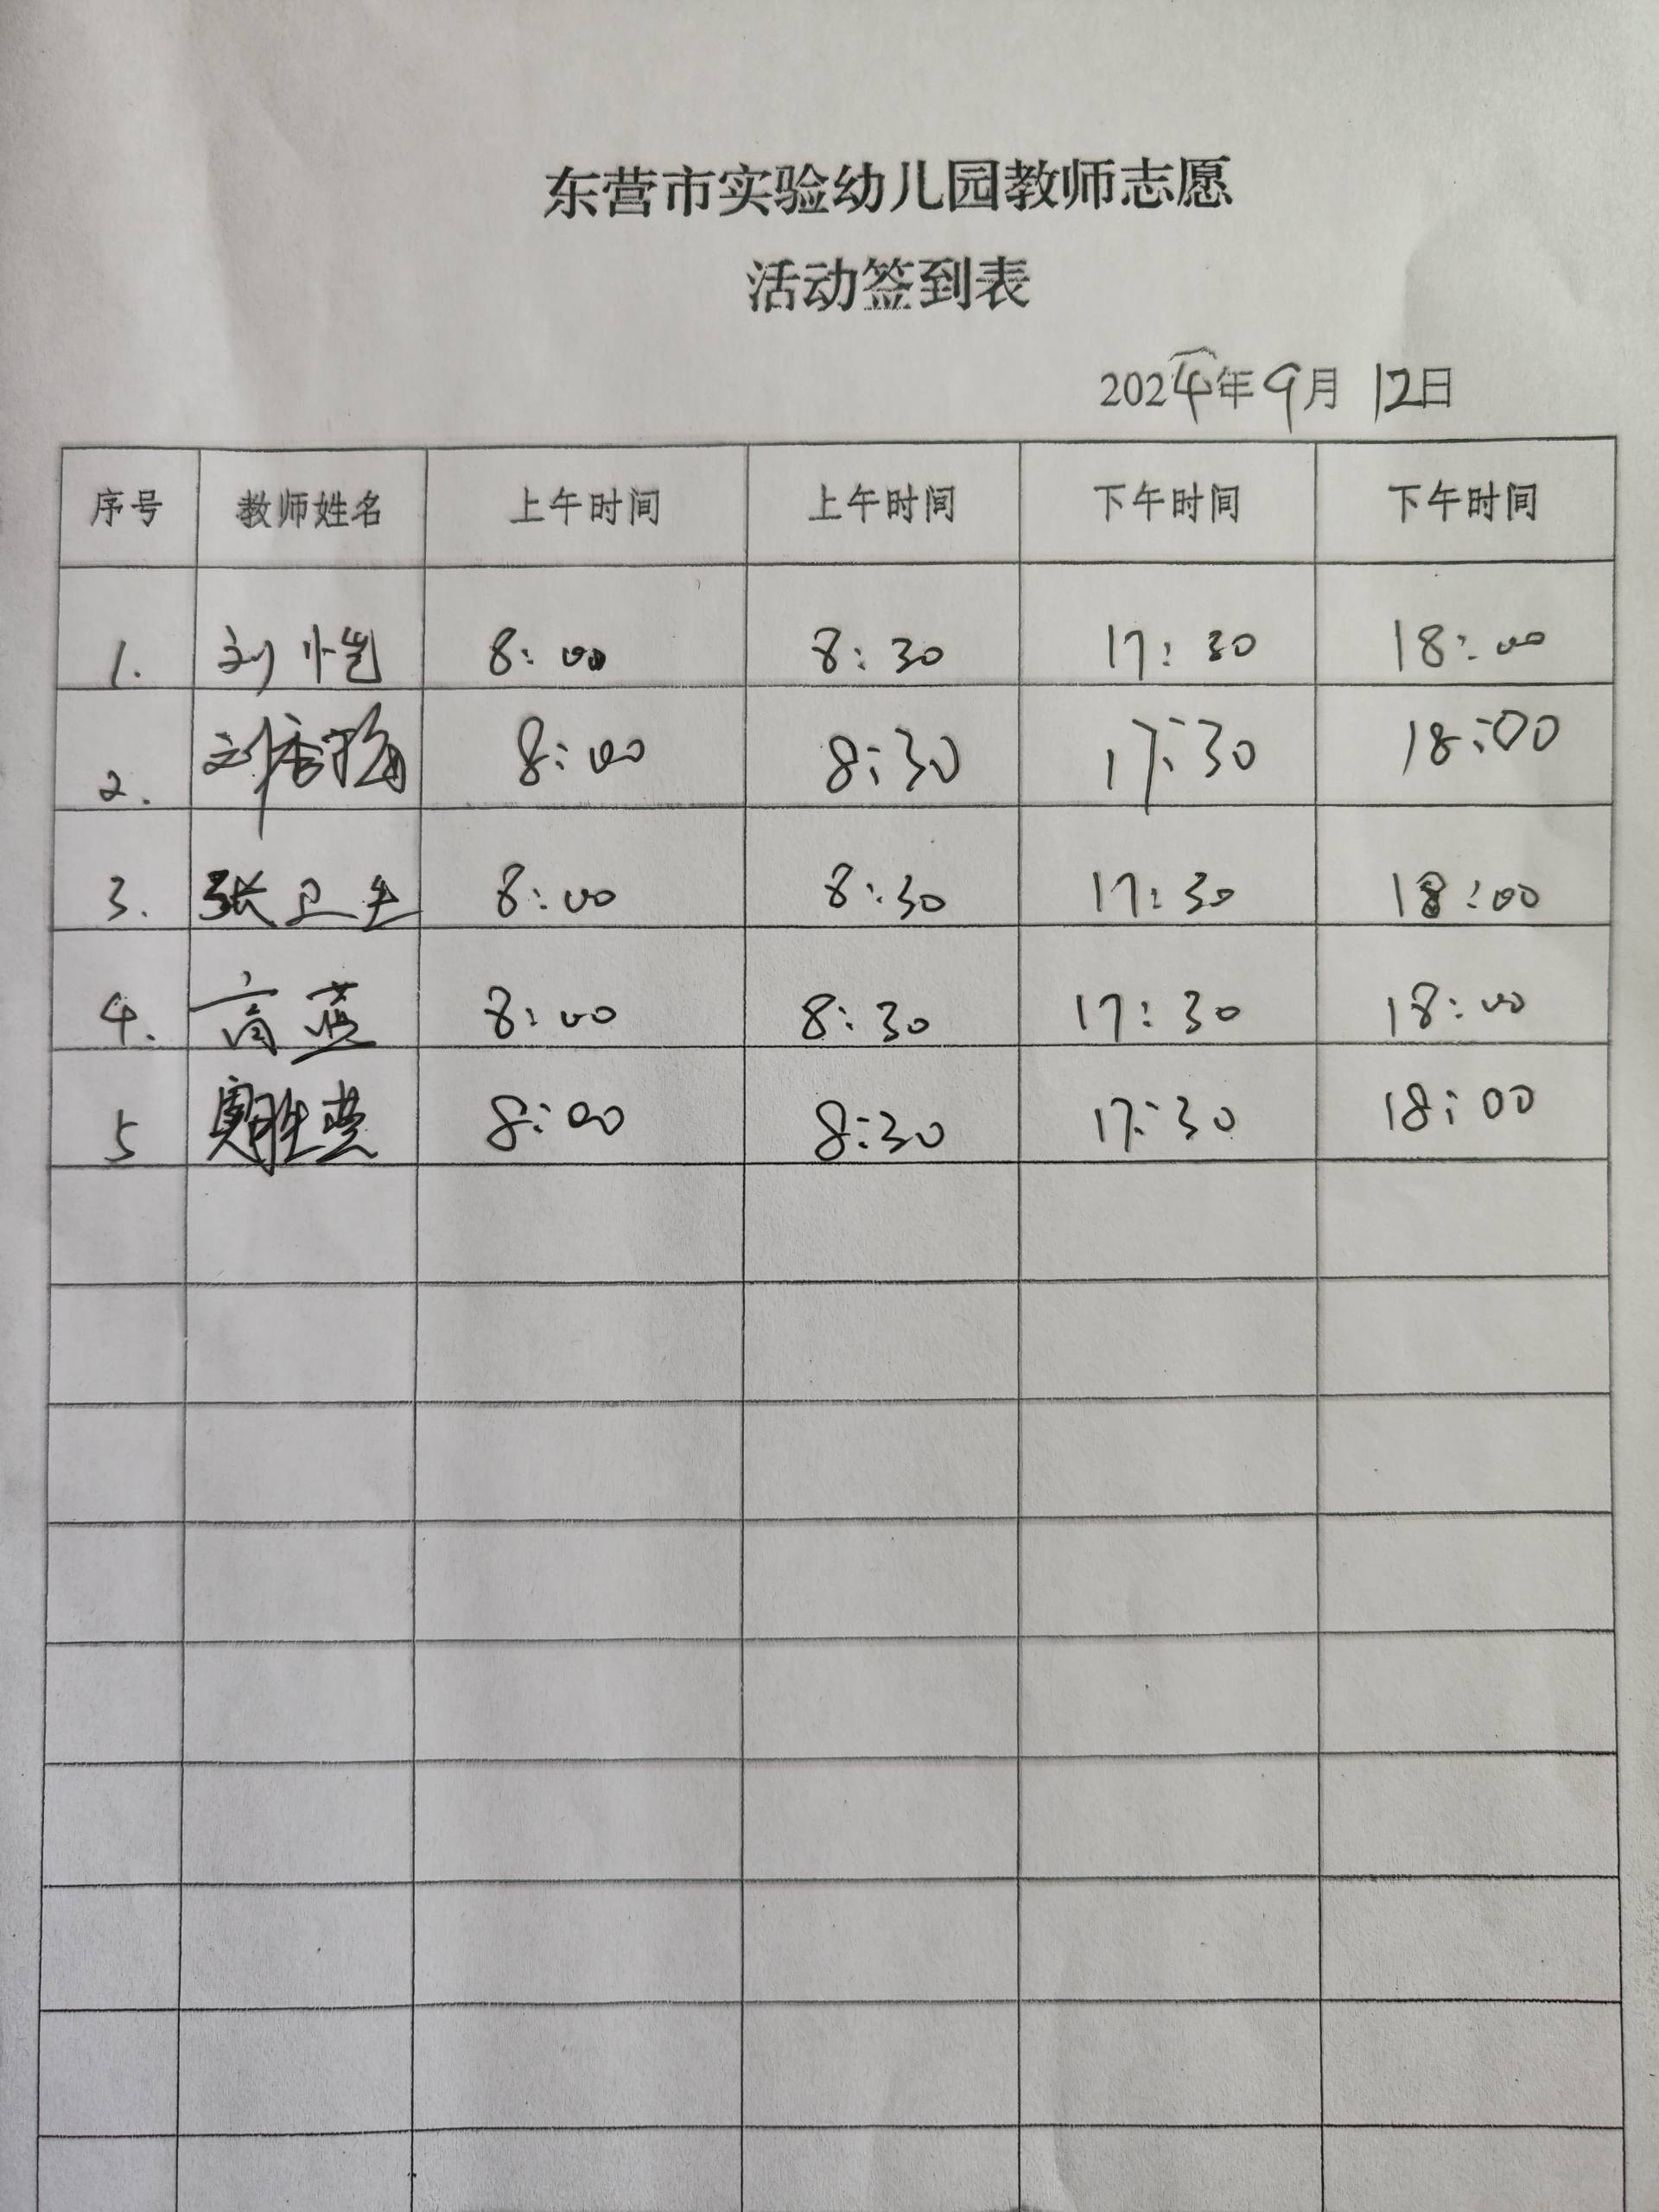 东营市实验幼儿园教师志愿
活动签到表
2024年9月12日
序号 教师姓名 上午时间 上午时间 下午时间 下午时间
1. 刘恺 8:00 8:30 17:30 18:00
2. 刘香梅 8:00 8:30 17:30 18:00
3. 张卫生 8:00 8:30 17:30 18:00
4. 高蓝 8:00 8:30 17:30 18:00
5 8:00 8:30 17:30 18:00